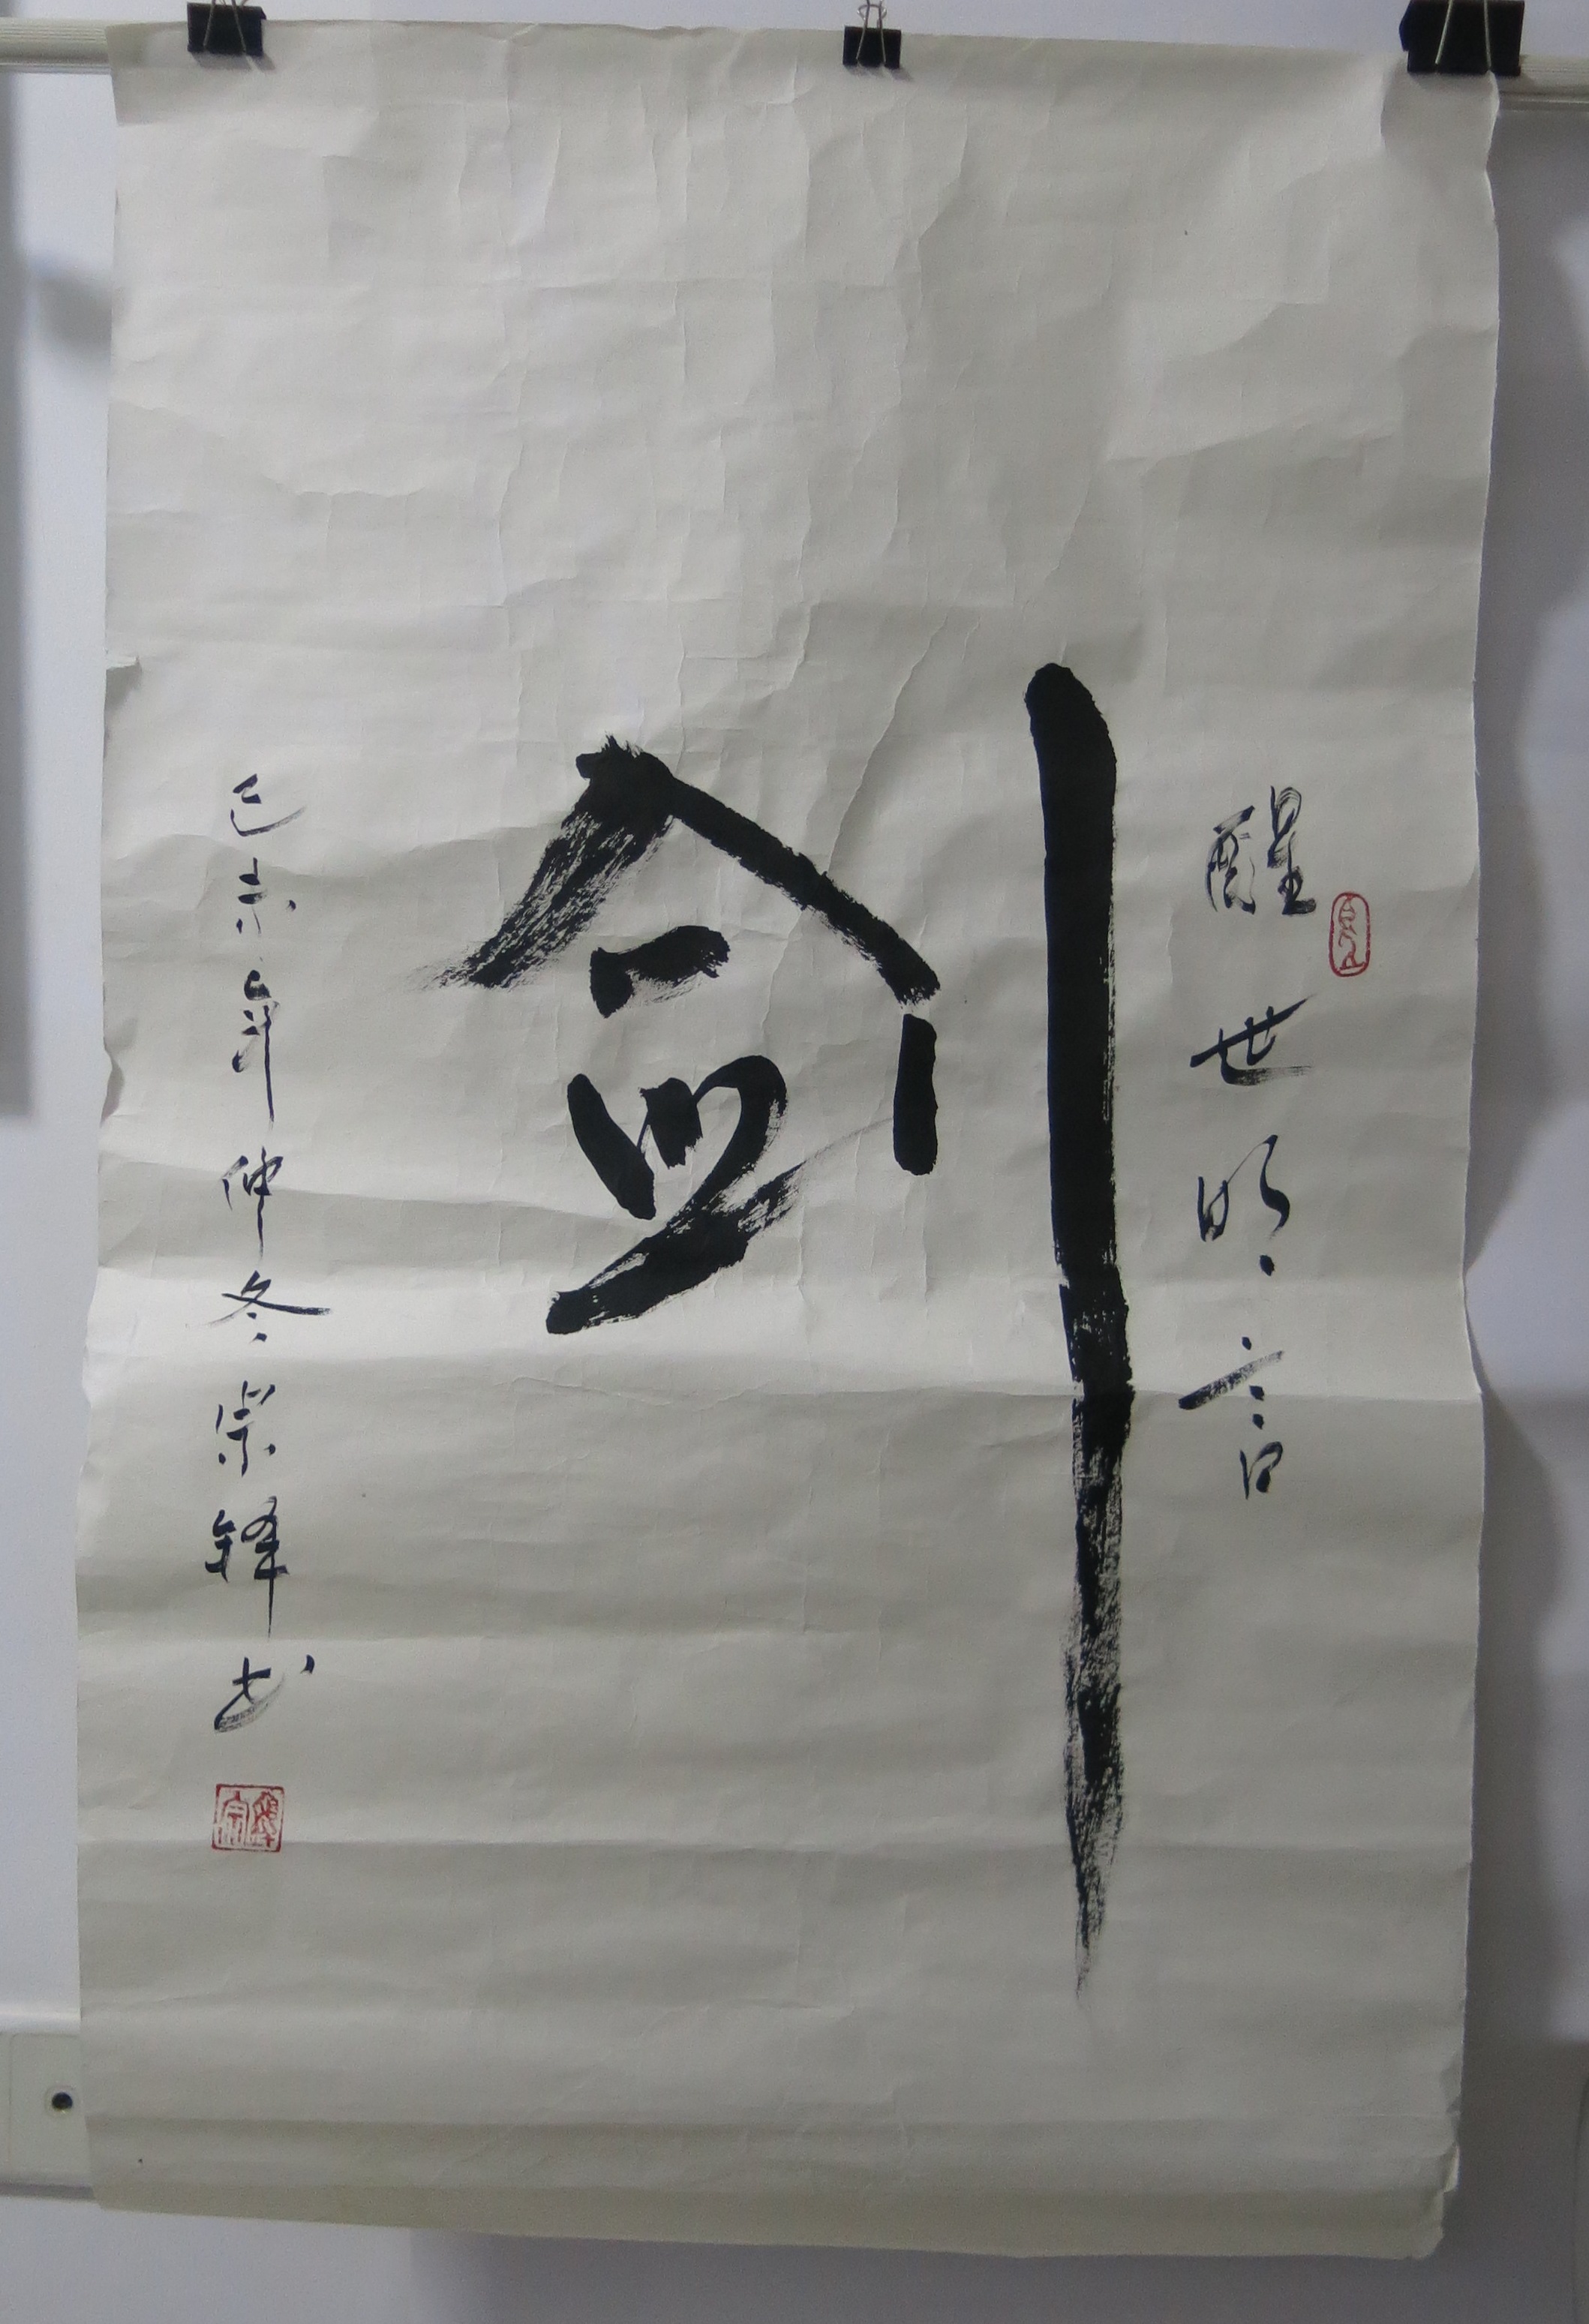 醒世明言
剑
己未年仲冬宗锋书